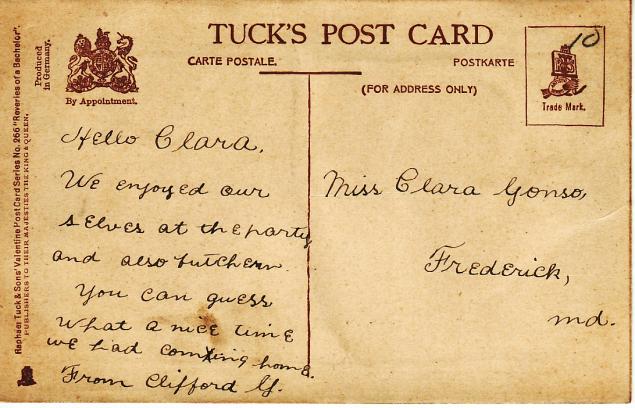 TUCK'S POST CARD
CARTE POSTALE.
POSTKARTE
(FOR ADDRESS ONLY)
Produced
in Germany.
By Appointment.
10
Trade Mark.
Raphael Tuck & Sons' Valentine Post Card Series No. 266 "Reveries of a Bachelor".
PUBLISHERS TO THEIR MAJESTIES THE KING & QUEEN.
Hello Clara.
We enjoyed our
selves at the party
and also
You can guess
What a nice time
we had coming home.
From Clifford G.
Miss Clara Gonso,
Frederick,
md.